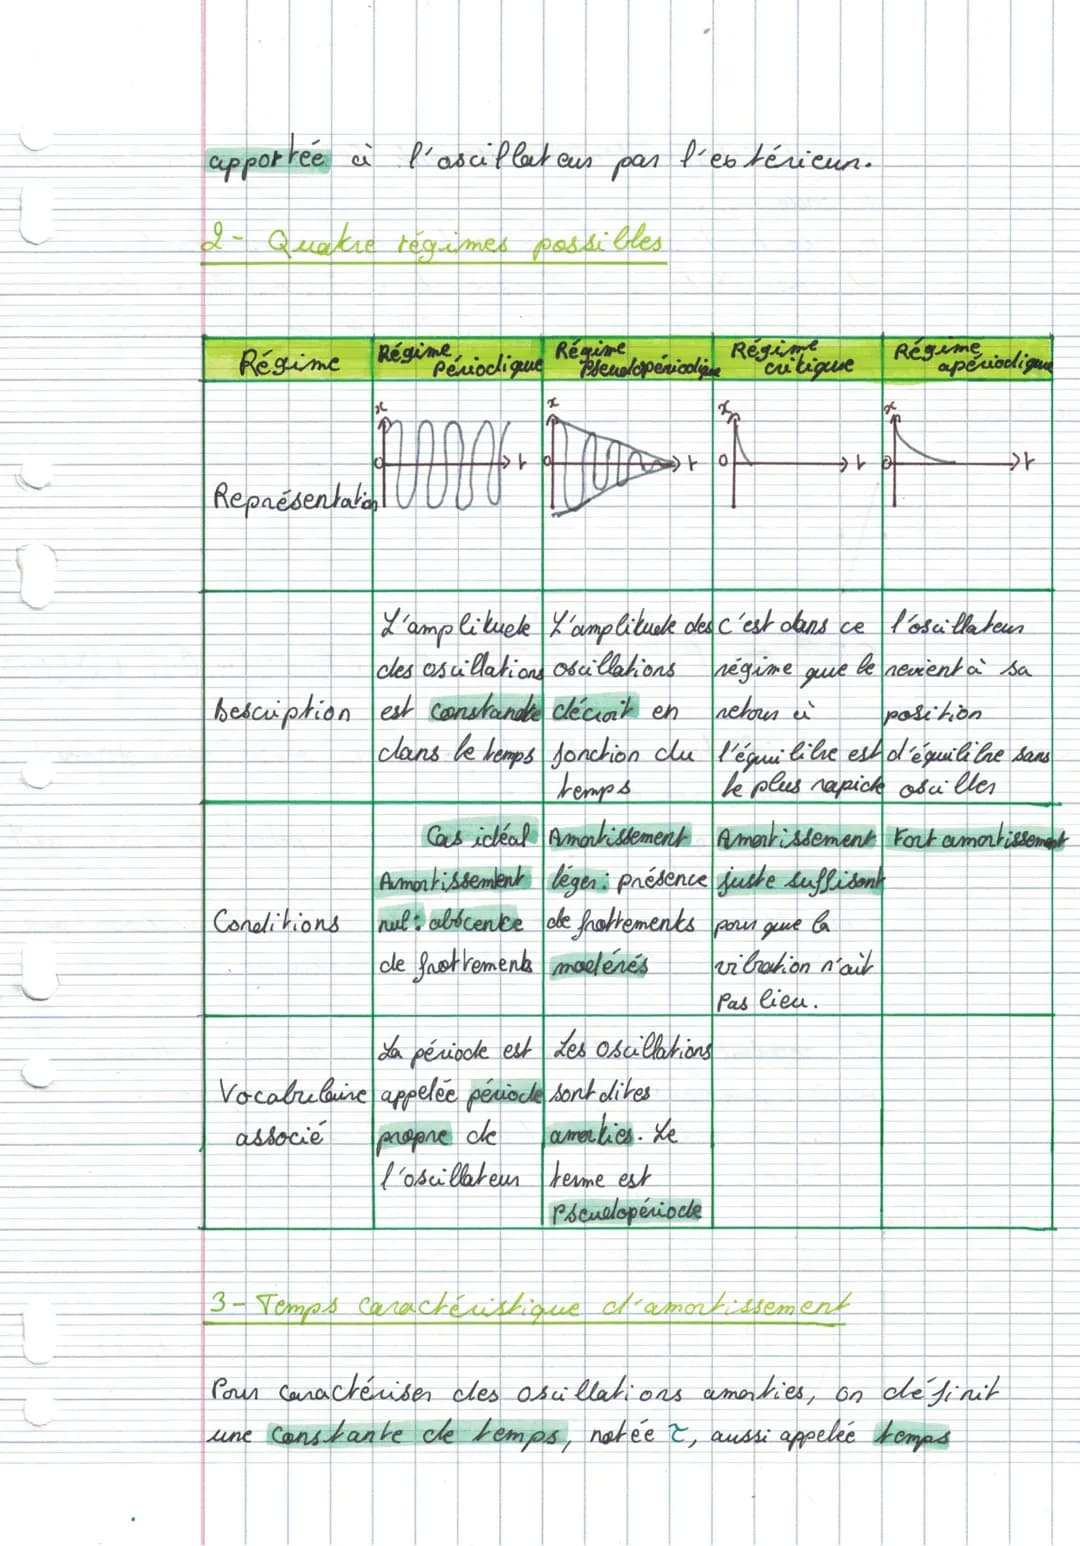 apportée à l'oscillateur par l'extérieur.
2- Quatre régimes possibles
Régime
Régime Périodique
Régime Pseudopériodique
Régime critique
Régime apériodique
Représentation
x
0
t
x
0
t
x
0
t
x
0
t
Description
L'amplitude
des oscillations
est constante
dans le temps
L'amplitude des
oscillations
décroit en
fonction du
temps
c'est dans ce
régime que le
retour à
l'équilibre est
le plus rapide
l'oscillateur
revient à sa
position
d'équilibre sans
osciller
Conditions
Cas idéal
Amortissement
nul : abscence
de frottements
Amortissement
léger : présence
de frottements
modérés
Amortissement
juste suffisant
pour que la
vibration n'ait
Pas lieu.
Fort amortissement
Vocabulaire
associé
La période est
appelée période
propre de
l'oscillateur
Les oscillations
sont dites
amorties. Le
terme est
Pseudopériode
3- Temps caractéristique d'amortissement
Pour caractériser des oscillations amorties, on définit
une constante de temps, notée τ, aussi appelée temps